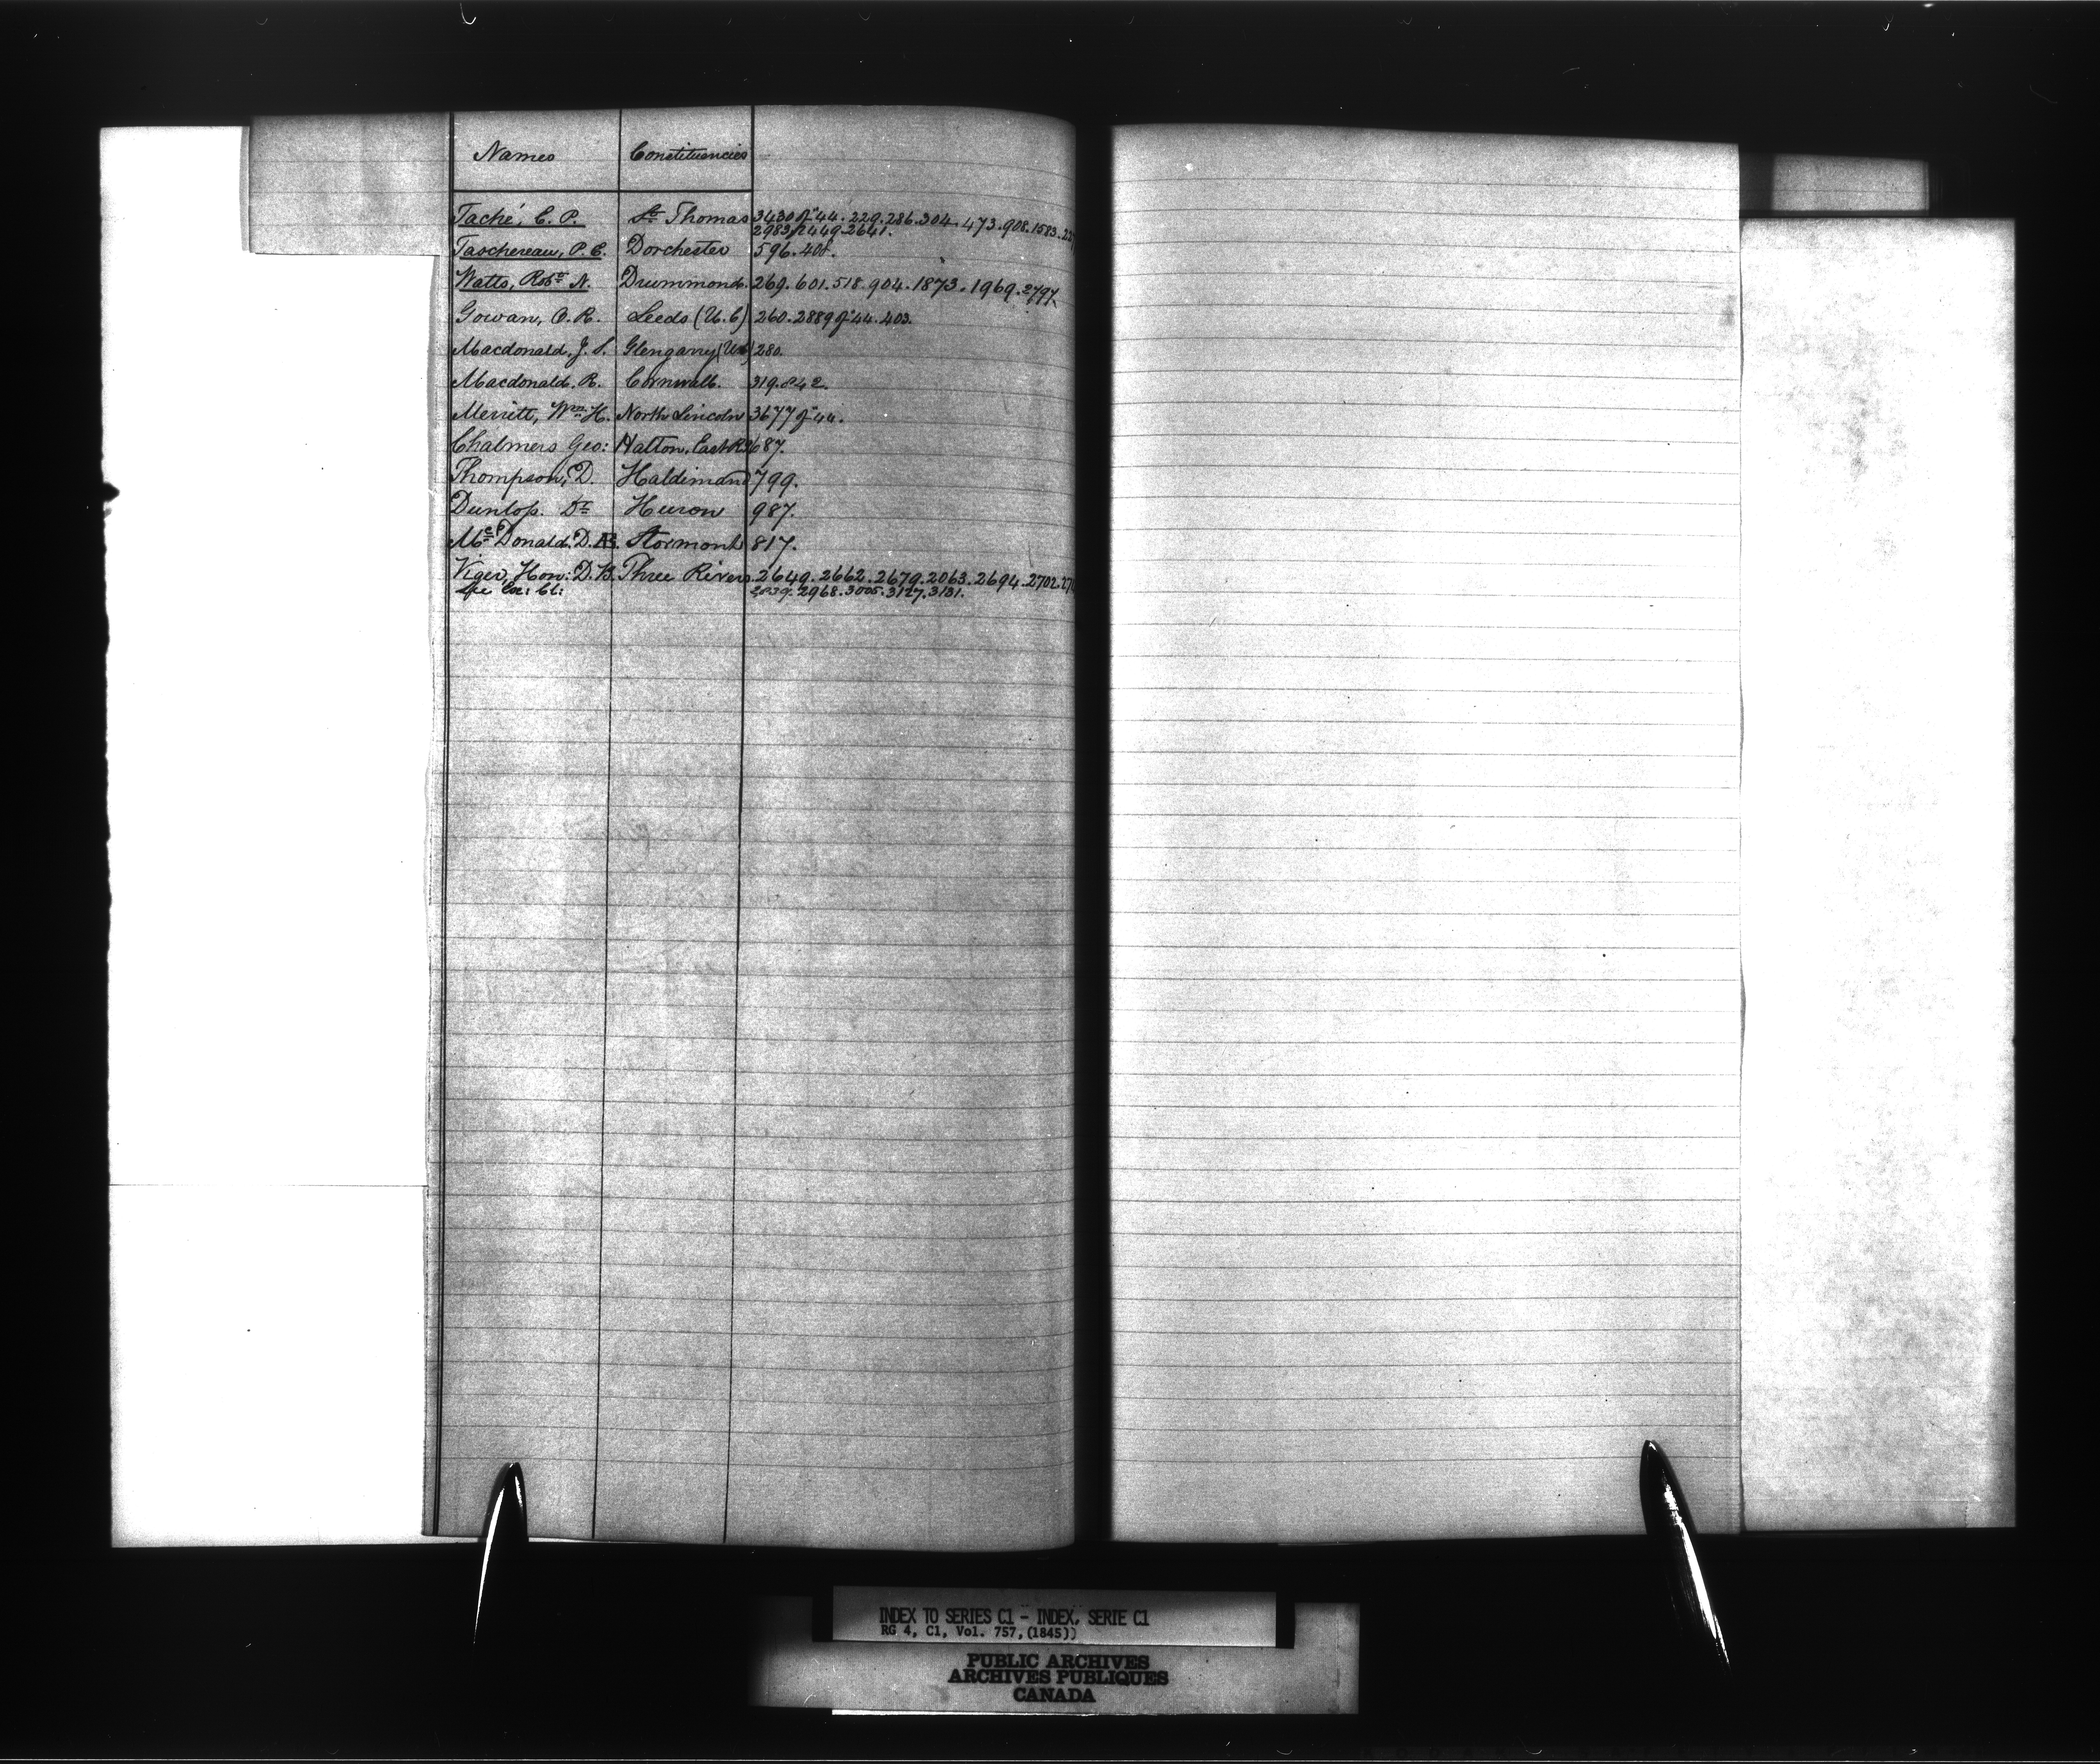 Names Constituencies
Taché, E. P. St Thomas 3430 of "44. 229. 286. 304. 473. 908. 1583.
2983. 2449. 2641.
Taschereau, P. E. Dorchester 596. 408.
Watts, Robt N. Drummond. 269. 601. 518. 904. 1873. 1969. 2797.
Gowan, O. R. Leeds (U. C) 260. 2889 of "44. 403.
Macdonald. J. S. Glengarry (UC) 280.
Macdonald. R. Cornwall. 319. 842.
Merritt, Wm H. North Lincoln 3677 of "44.
Chalmers Geo: Halton, East Rg 687.
Thompson, D. Haldimand 799.
Dunlop. Dr Huron 987.
McDonald. D. Æ. Stormont 817.
Viger, Hon: D. B. Three Rivers 2649. 2662. 2679. 2063. 2694. 2702.
2839. 2968. 3005. 3127. 3131.
INDEX TO SERIES C1 - INDEX, SERIE C1
RG 4, C1, Vol. 757, (1845))
PUBLIC ARCHIVES
ARCHIVES PUBLIQUES
CANADA